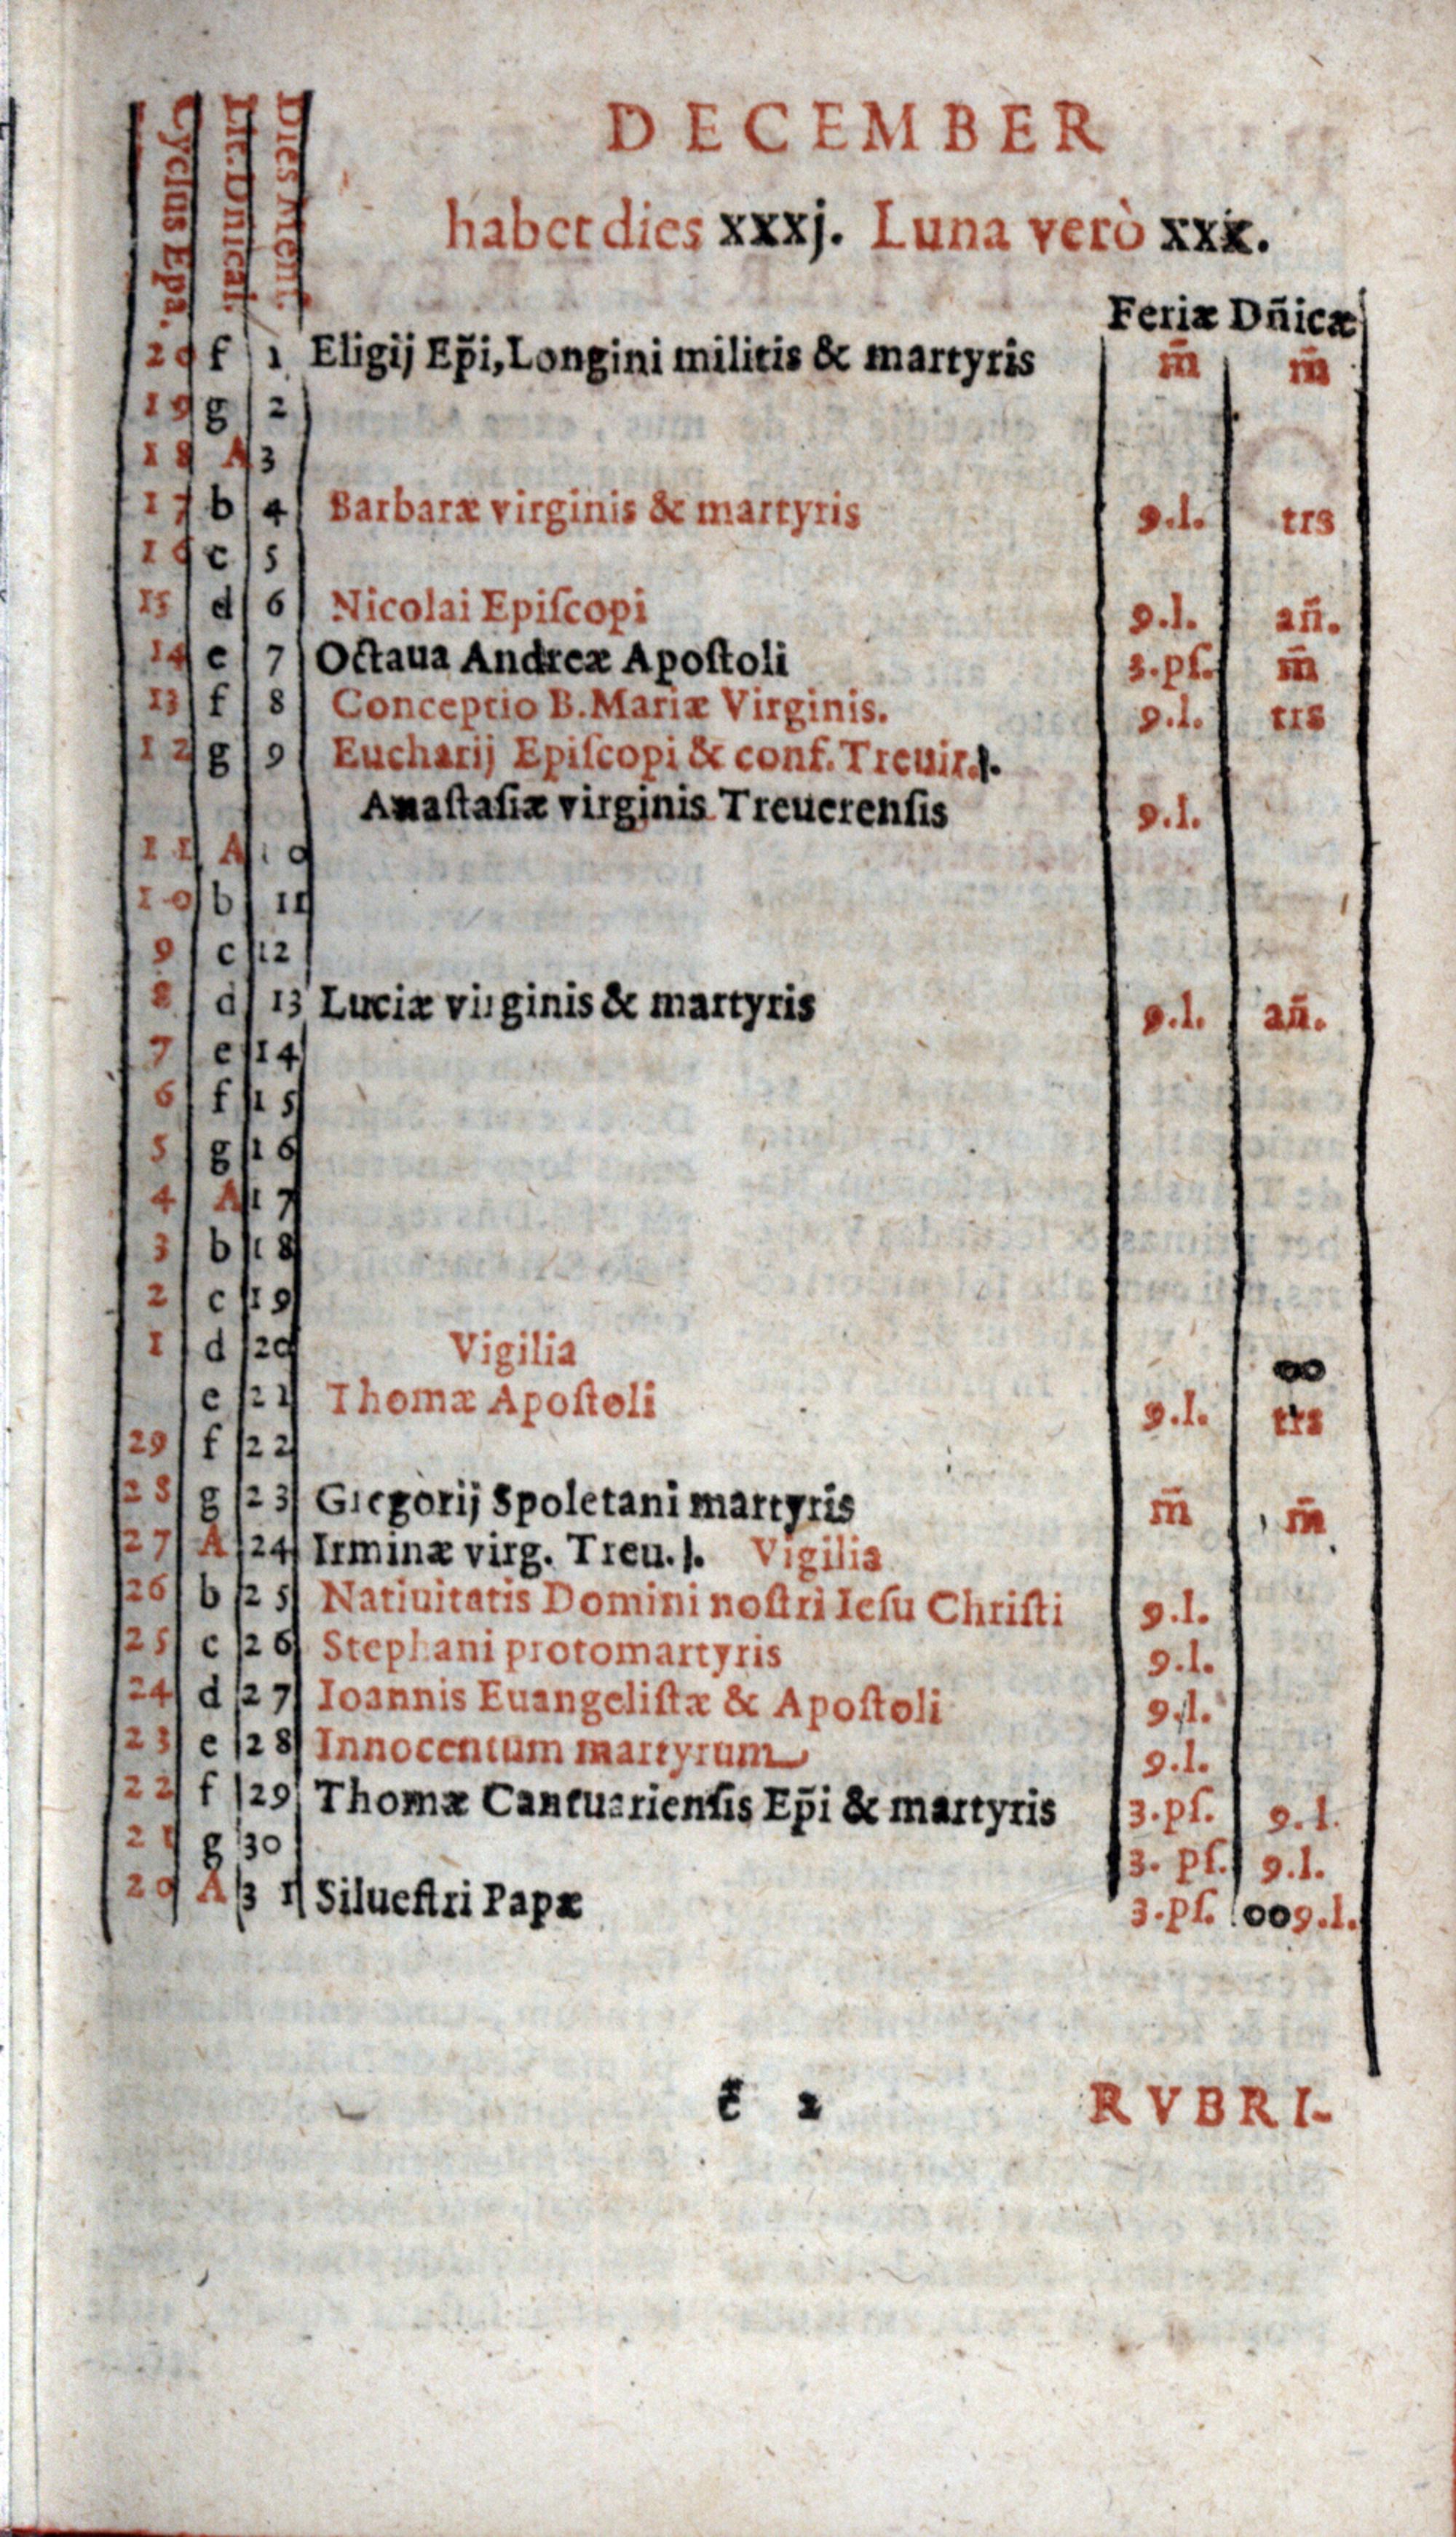 DECEMBER
habet dies xxxj. Luna verò xxx.
Cyclus Epa. Lit. Dnical. Dies Mens. Feriæ Dñicæ
20 f 1 Eligij Ep̃i, Longini militis & martyris m̃ m̃
19 g 2
18 A 3
17 b 4 Barbaræ virginis & martyris 9.l. trs
16 c 5
15 d 6 Nicolai Epiſcopi 9.l. añ.
14 e 7 Octaua Andreæ Apoſtoli 3.pſ. m̃
13 f 8 Conceptio B. Mariæ Virginis. 9.l. trs
12 g 9 Eucharij Epiſcopi & conf. Treuir.
Anaſtaſiæ virginis Treuerenſis 9.l.
11 A 10
10 b 11
9 c 12
8 d 13 Luciæ virginis & martyris 9.l. añ.
7 e 14
6 f 15
5 g 16
4 A 17
3 b 18
2 c 19
1 d 20 Vigilia
e 21 Thomæ Apoſtoli 9.l. trs
29 f 22
28 g 23 Gregorij Spoletani martyris m̃ m̃
27 A 24 Irminæ virg. Treu. Vigilia
26 b 25 Natiuitatis Domini noſtri Ieſu Chriſti 9.l.
25 c 26 Stephani protomartyris 9.l.
24 d 27 Ioannis Euangeliſtæ & Apoſtoli 9.l.
23 e 28 Innocentum martyrum 9.l.
22 f 29 Thomæ Cantuarienſis Ep̃i & martyris 3.pſ. 9.l.
21 g 30 3. pſ. 9.l.
20 A 31 Silueſtri Papæ 3.pſ. 009.l.
c̃ 2 RVBRI-